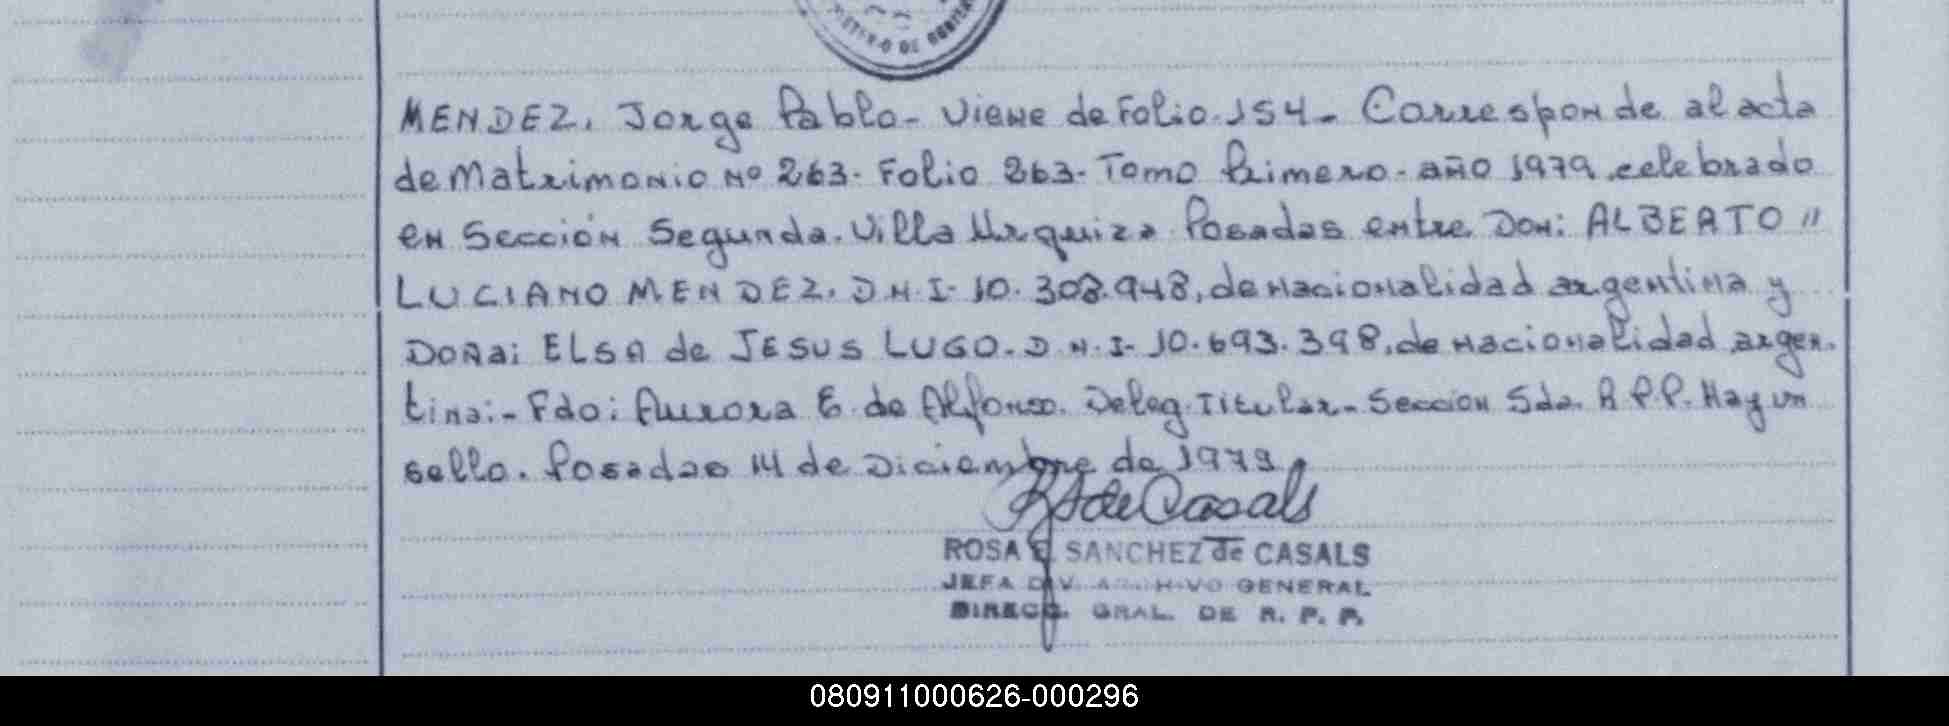 MENDEZ. Jorge Pablo- Viene de Folio. 154- Corresponde al acta
de Matrimonio Nº 263- Folio 263- Tomo Primero- año 1979, celebrado
en Sección Segunda. Villa Urquiza Posadas entre Don: ALBERTO "
LUCIANO MENDEZ. D.N.I- 10.308.948, de nacionalidad argentina y
DOÑA: ELSA de JESUS LUGO- D.N.I- 10.693.398, de nacionalidad argen-
tina:- Fdo: Aurora E. de Alfonso. Deleg. Titular- Sección Sda. R.P.P. Hay un
sello. Posadas 14 de Diciembre de 1979.
de Casals
ROSA E. SANCHEZ de CASALS
JEFA DIV. ARCHIVO GENERAL
DIRECC. GRAL. DE R. P. P.
080911000626-000296